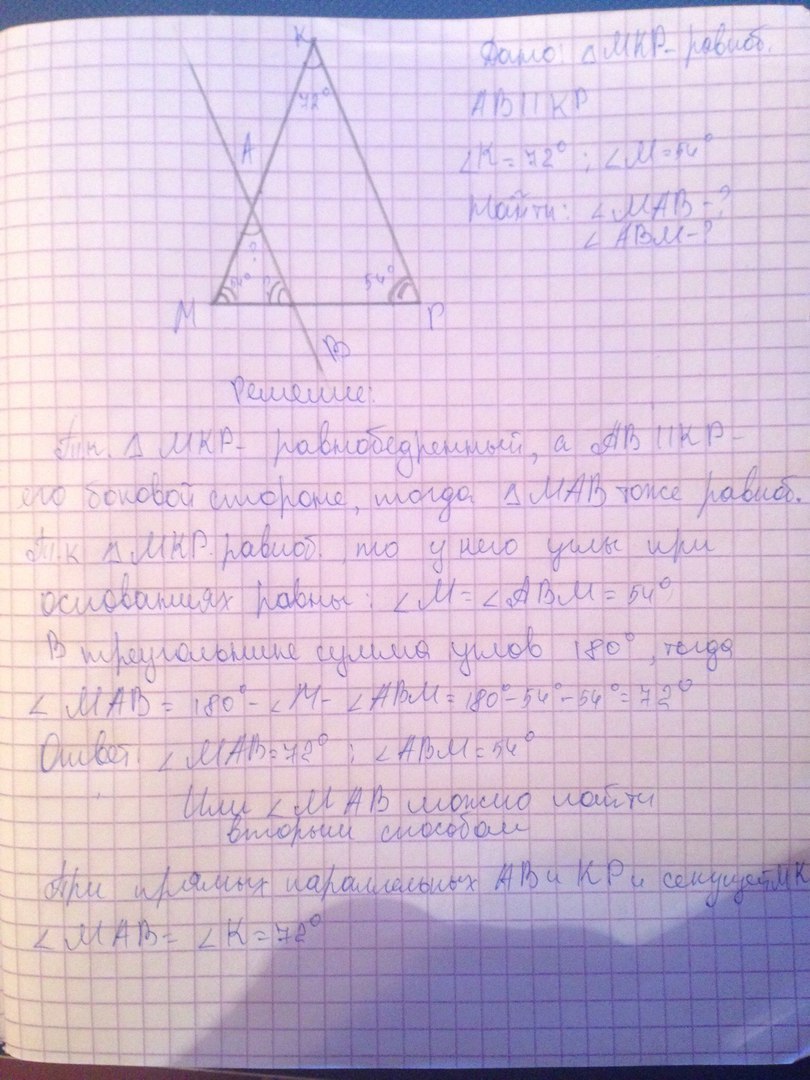 K
72°
A
?
54° ? 54°
M P
B
Дано: △MKP - равноб.
AB || KP
∠K = 72° ; ∠M = 54°
Найти: ∠MAB - ?
∠ABM - ?
Решение:
Т.к. △MKP - равнобедренный, а AB || KP -
его боковой стороне, тогда △MAB тоже равноб.
Т.к △MKP равноб. то у него углы при
основаниях равны: ∠M = ∠ABM = 54°
В треугольнике сумма углов 180°, тогда
∠MAB = 180° - ∠M - ∠ABM = 180° - 54° - 54° = 72°
Ответ: ∠MAB = 72° ; ∠ABM = 54°
Или ∠MAB можно найти
вторым способом
При прямых параллельных AB и KP и секущей MK
∠MAB = ∠K = 72°